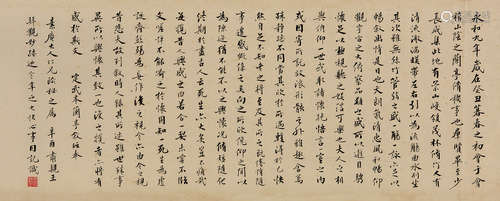 永和九年歲在癸丑暮春之初會于會
稽山陰之蘭亭脩稧事也群賢畢至少
長咸集此地有崇山峻領茂林脩竹又有
清流激湍暎帶左右引以為流觴曲水列坐
其次雖無絲竹管弦之盛一觴一詠亦足以
暢敘幽情是日也天朗氣清惠風和暢仰
觀宇宙之大俯察品類之盛所以遊目騁
懷足以極視聽之娛信可樂也夫人之相
與俯仰一世或取諸懷抱悟言一室之內
或因寄所託放浪形骸之外雖趣舍萬
殊靜躁不同當其欣於所遇暫得於己快
然自足不知老之將至及其所之既惓情隨
事遷感慨係之矣向之所欣俛仰之間以
為陳迹猶不能不以之興懷況脩短隨化
終期於盡古人云死生亦大矣豈不痛哉
每攬昔人興感之由若合一契未嘗不臨
文嗟悼不能喻之於懷固知一死生為虛
誕齊彭殤為妄作後之視今亦由今之視
昔悲夫故列敘時人錄其所述雖世殊事
異所以興懷其致一也後之攬者亦將有
感於斯文 定武本蘭亭
大人仁兄法 之屬 辛酉 肅親王
拜觀妙跡 之大快心事因記